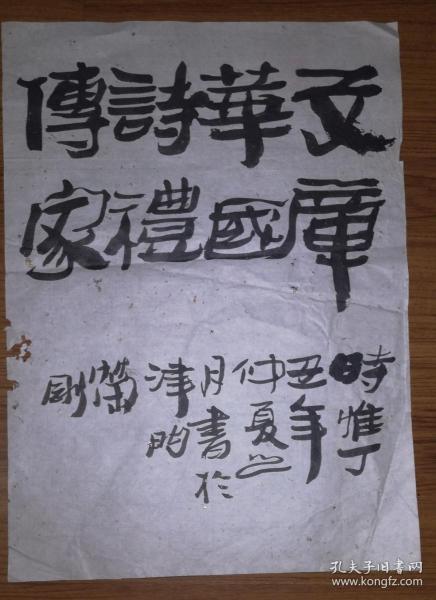 文章
華國
詩禮
傳家
時惟丁
丑年
仲夏之
月書於
津
剛
孔夫子旧书网
www.kongfz.com